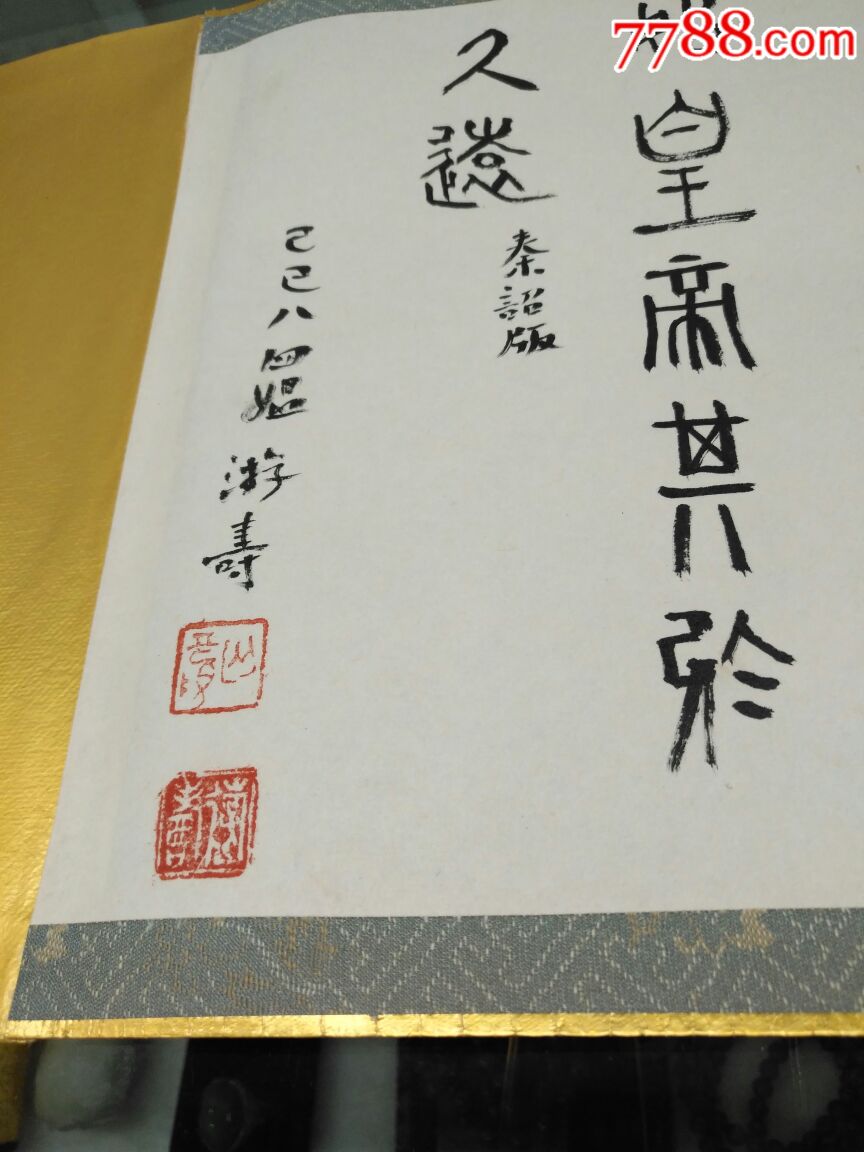 7788.com
皇帝其於
久遠
秦詔版
己巳八四嫗
游壽